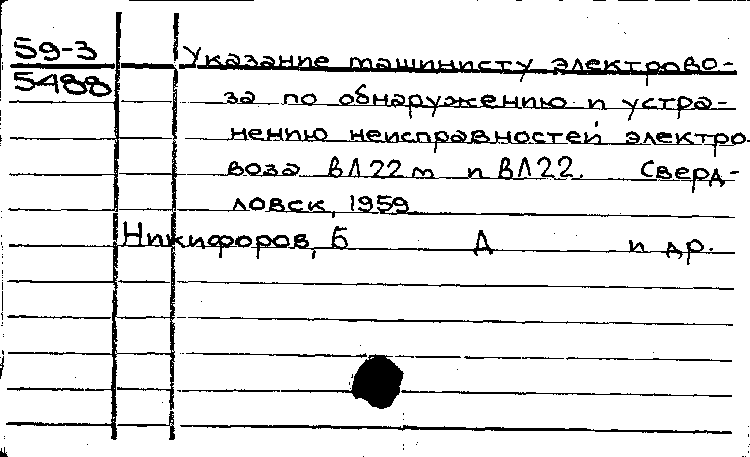 59-3 Указание машинисту электрово-
5488 за по обнаружению и устра-
нению неисправностей электро
воза ВЛ22м и ВЛ22. Сверд-
ловск, 1959
Никифоров, Б Д и др.